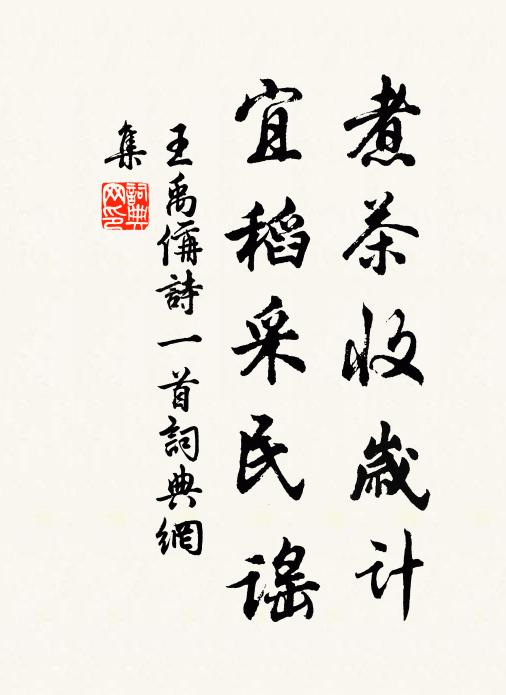 煮茶收歲计
宜稻采民謡
王禹偁詩一首詞典網
集
詞典網印